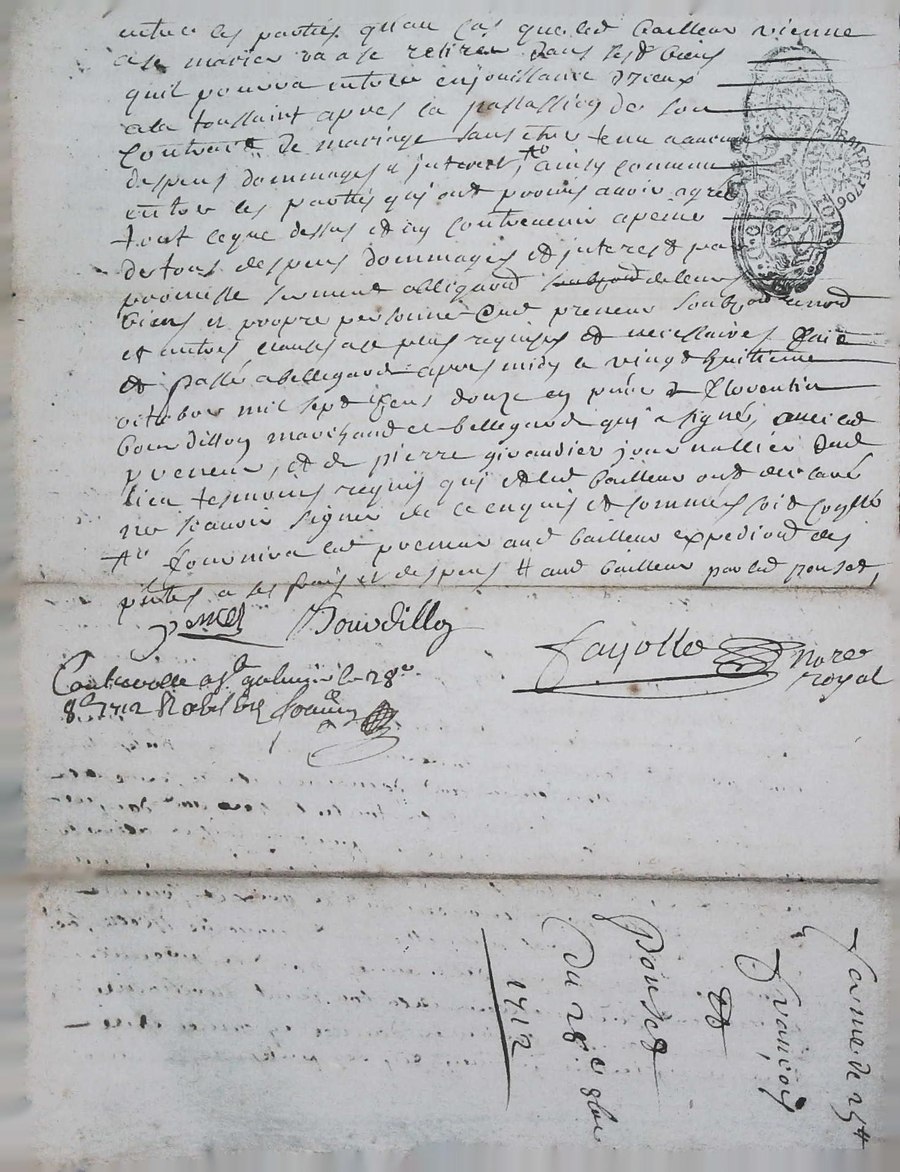 entre les parties qu'au cas que led bailleur vienne
a se marier ou a se retirer dans sesd biens
quil pourra entrer en jouissance d'iceux
a la toussaint apres la passassion de son
contract de mariage sans estre tenu a aucuns
despens dommages et interest, ainsy convenu
entre les parties qui ont promis avoir agreé
tout ceque dessus et ny contrevenir a peine
de tous despens dommages et interest par
promisse serment obligaōn de leurs
biens et propre personne dud preneur soubzōn renōn
et autres clauses a ce plus requises et necessaires faict
et passé a bellegarde apres midy le vingt huitieme
octobre mil sept cens douze en pñce de florentin
bourdillon marchand de bellegarde qui a signé, avec led
preneur, et de pierre giraudier journallier dud
lieu tesmoins requis qui et led bailleur ont declaré
ne scavoir signer de ce enquis et sommés
fournira led preneur aud bailleur expediōn des
pñtes a ses frais et despens # aud bailleur par led pouset,
Bourdillon
Fayolle Nore
royal
Controolle a St galmier le 28e
8bre 1712
Ferme de 25#
Francois
et
Pouset
Du 28e 8bre
1712